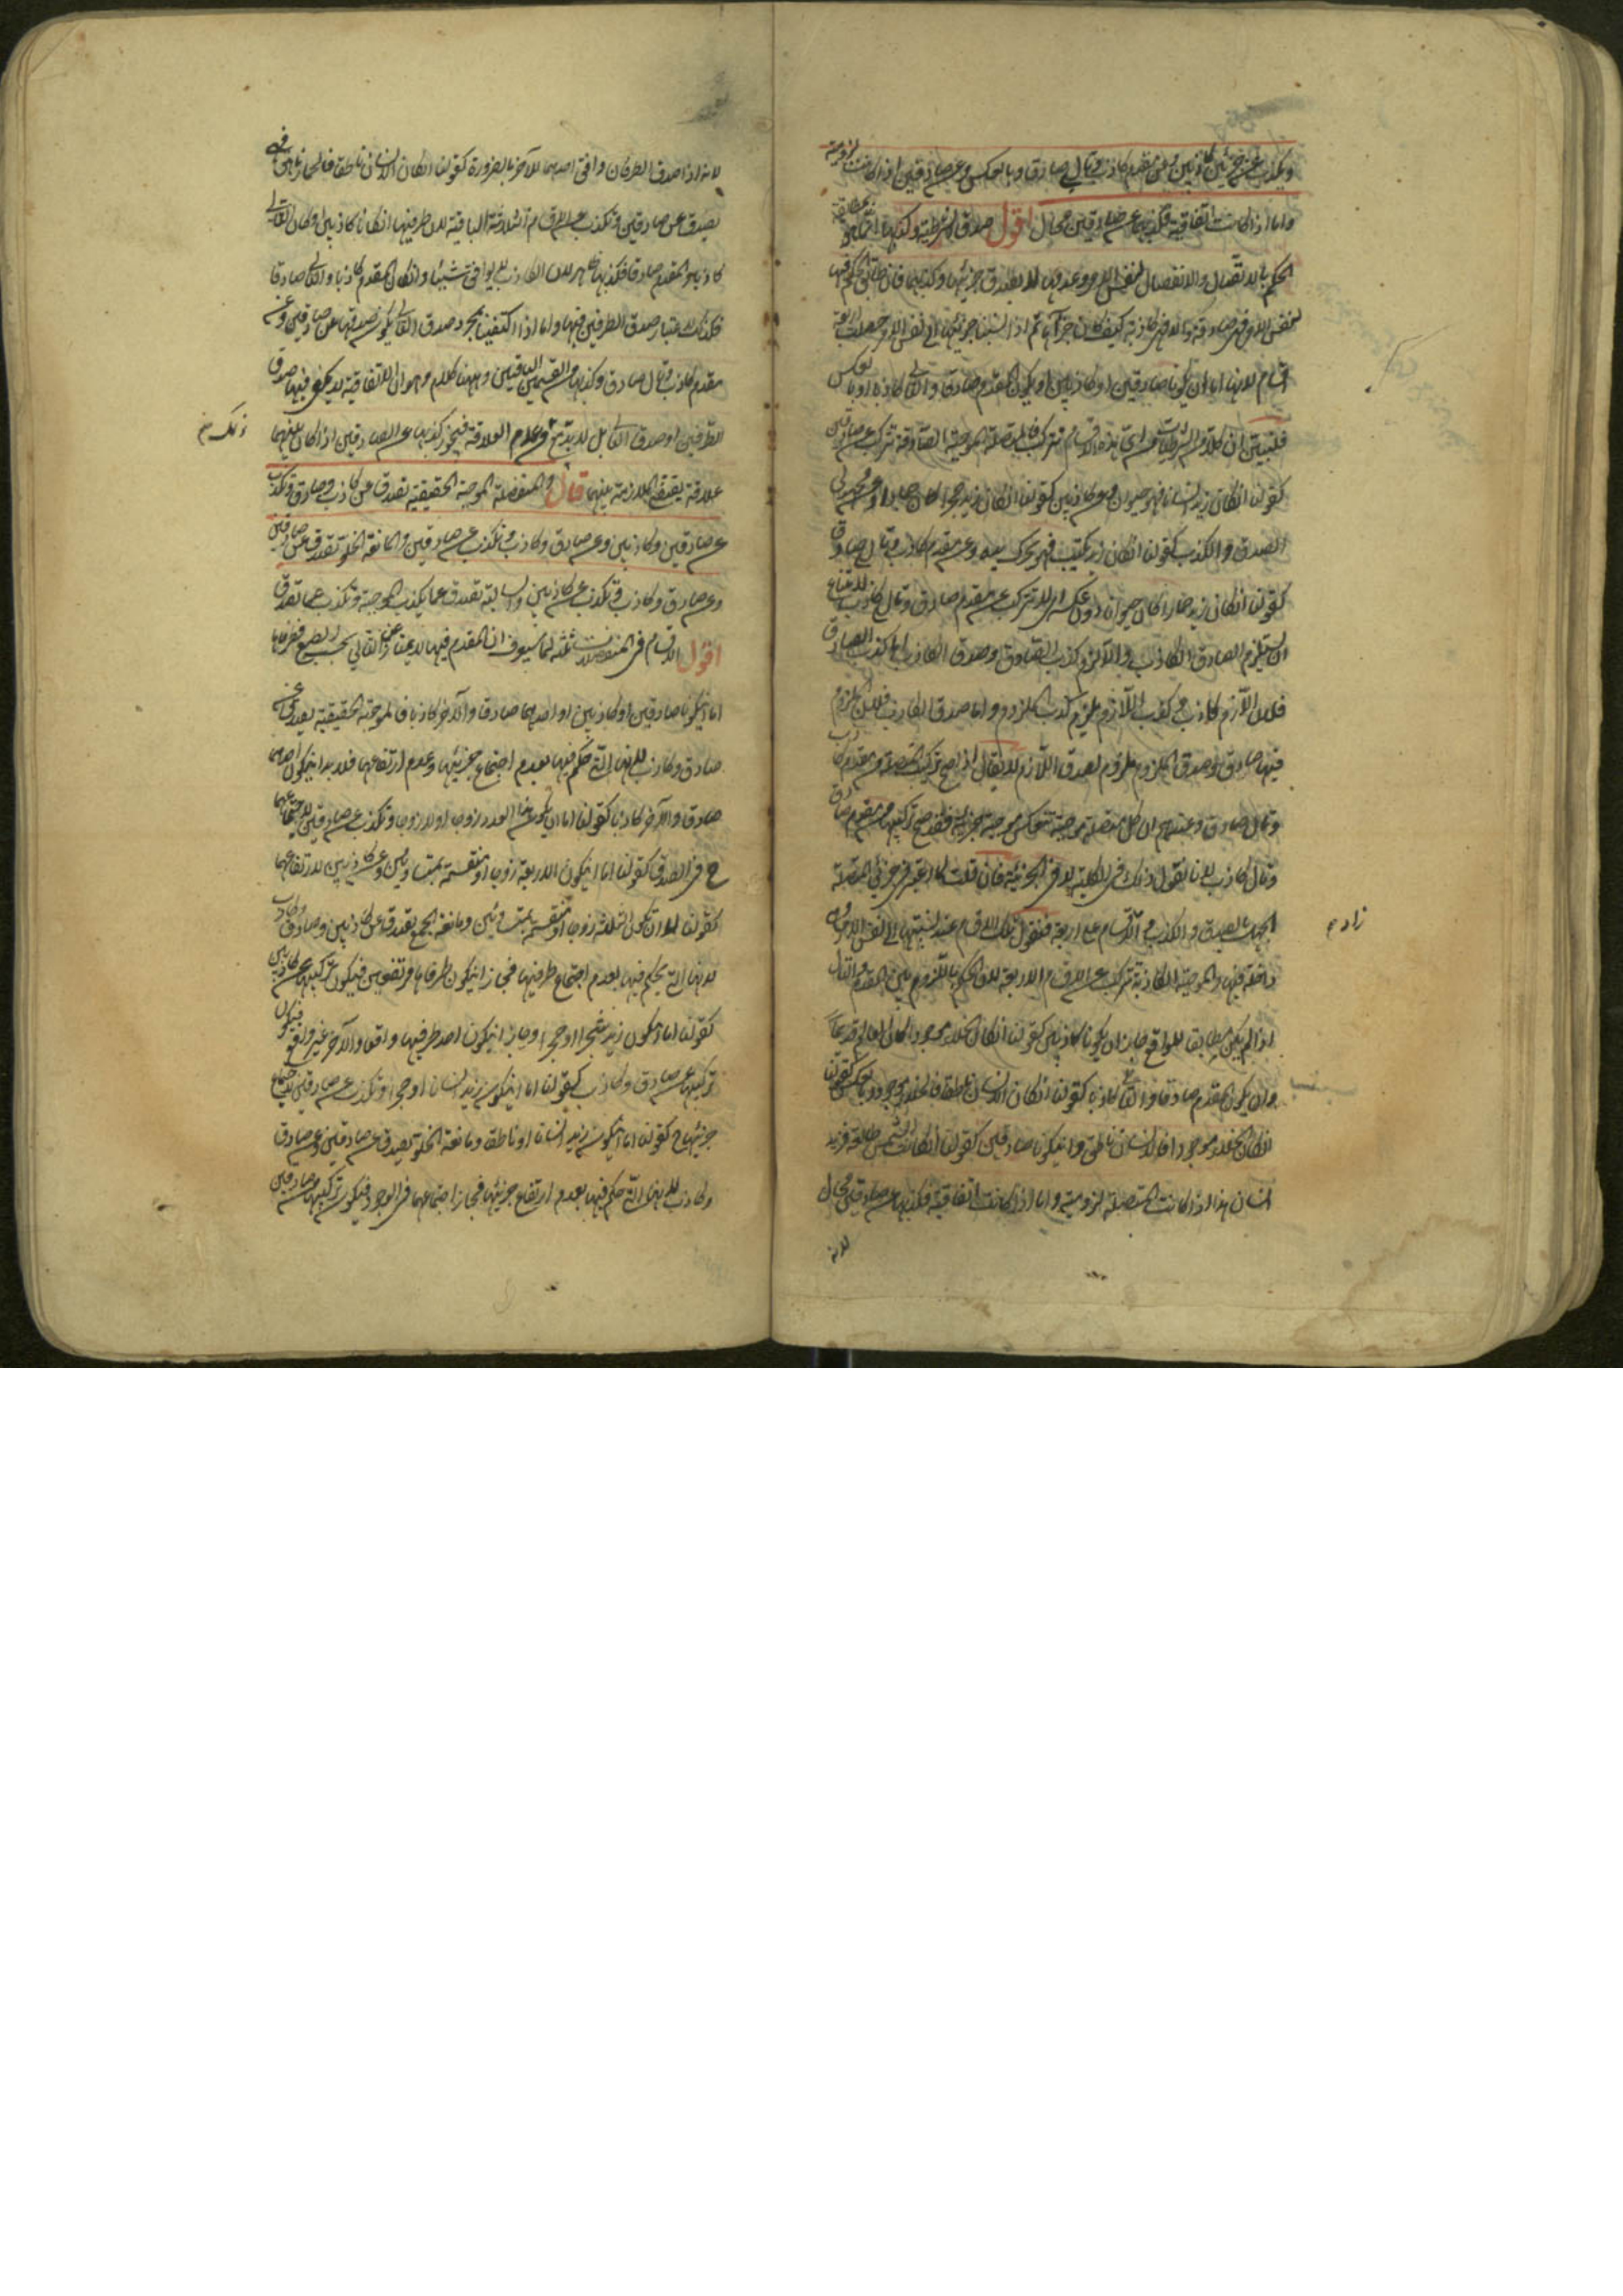 ويكذب عن جزئين كاذبين وعن مقدم كاذب وتال صادق وبالعكس وعن صادقين اذا كانت لزومية
واما اذا كانت اتفاقية فكذبها عن صادقين محال اقول صدق الشرطية وكذبها انما هو بمطابقة
الحكم بالاتصال والانفصال لنفس الامر وعدمها لا بصدق جزئيها وكذبهما فان طابق الحكم فيها
لنفس الامر فهي صادقة والا فهي كاذبة كيف كان جزآها ثم اذا نسبنا جزئيها الى نفس الامر حصلت اربعة
اقسام لانها اما ان يكونا صادقين او كاذبين او يكون المقدم صادقا والتالى كاذبا او بالعكس
فلنبين ان كلا من الشرطيات من اى هذه الاقسام تتركب فالمتصلة الموجبة الصادقة تتركب عن صادقين
كقولنا انكان زيد انسانا فهو حيوان وعن كاذبين كقولنا انكان زيد حجرا كان جمادا وعن مجهولى
الصدق والكذب كقولنا انكان زيد يكتب فهو يحرك يده وعن مقدم كاذب وتال صادق
كقولنا انكان زيد حمارا كان حيوانا دون عكسه اى لا تتركب عن مقدم صادق وتال كاذب لامتناع
ان يستلزم الصادق الكاذب والا لزم كذب الصادق وصدق الكاذب اما كذب الصادق
فلان اللازم كاذب وكذب اللازم يستلزم كذب الملزوم واما صدق الكاذب فلان الملزوم
فيها صادق وصدق الملزوم ملزوم لصدق اللازم لا يقال اذا صح تركيب المتصلة من مقدم كاذب
وتال صادق وعندهم ان كل متصلة موجبة تنعكس موجبة جزئية فقد صح تركيبها من مقدم صادق
وتال كاذب لانا نقول ذلك فى الكلية لا فى الجزئية فان قلت لما اعتبر فى جزئى المتصلة
الجهل بالصدق والكذب زاد الاقسام على اربعة فنقول تلك الاقسام عند نسبتهما الى نفس الامر وهى
داخلة فيها والموجبة الكاذبة تتركب عن الاقسام الاربعة لان الحكم باللزوم بين المقدم والتالى
اذا لم يكن مطابقا للواقع جاز ان يكونا كاذبين كقولنا انكان الخلاء موجودا كان العالم قديما
وان يكون المقدم صادقا والتالى كاذبا كقولنا انكان الانسان ناطقا فالخلاء موجود وبالعكس كقولنا
انكان الخلاء موجودا فالانسان ناطق وان يكونا صادقين كقولنا انكانت الشمس طالعة فزيد
انسان هذا اذا كانت المتصلة لزومية واما اذا كانت اتفاقية فكذبها عن صادقين محال
لانه
لانه اذا صدق الطرفان وافق احدهما الآخر بالضرورة كقولنا انكان الانسان ناطقا فالحمار ناهق فهى
تصدق عن صادقين وتكذب عن الاقسام الثلاثة الباقية لان طرفيها انكانا كاذبين او كان التالى
كاذبا والمقدم صادقا فكذبها ظاهر لان الكاذب لا يوافق شيئا وانكان المقدم كاذبا والتالى صادقا
فكذلك لاعتبار صدق الطرفين فيها واما اذا اكتفينا بمجرد صدق التالى يكون صدقها عن صادقين وعن
مقدم كاذب وتال صادق وكذبها عن القسمين الباقيين وههنا كلام وهو ان الاتفاقية لا يكفى فيها صدق
الطرفين او صدق التالى بل لا بد مع ذلك من عدم العلاقة فيجوز كذبها عن الصادقين اذا كان بينهما
علاقة يقتضى الملازمة بينهما قال والمنفصلة الموجبة الحقيقية تصدق عن كاذب وصادق وتكذب
عن صادقين وكاذبين وعن صادق وكاذب وتكذب عن صادقين ومانعة الخلو تصدق عن صادقين
وعن صادق وكاذب وتكذب عن كاذبين والسالبة تصدق عما يكذب الموجبة وتكذب عما تصدق
اقول الاقسام فى المنفصلات ثلثة لما سيعرف ان المقدم فيها لا يمتاز عن التالى بحسب الطبع فطرفاها
اما ان يكونا صادقين او كاذبين او احدهما صادقا والآخر كاذبا فالموجبة الحقيقية تصدق عن
صادق وكاذب لانها التى حكم فيها بعدم اجتماع جزئيها وعدم ارتفاعهما فلا بد ان يكون احدهما
صادقا والآخر كاذبا كقولنا اما ان يكون هذا العدد زوجا او لا زوجا وتكذب عن صادقين لاجتماعهما
ح فى الصدق كقولنا اما ان يكون الاربعة زوجا او منقسمة بمتساويين وعن كاذبين لارتفاعهما
كقولنا اما ان تكون الثلثة زوجا او منقسمة بمتساويين ومانعة الجمع تصدق عن كاذبين وصادق وكاذب
لانها التى يحكم فيها بعدم اجتماع طرفيها فجاز ان يكون طرفاها مرتفعين فيكون تركيبها عن كاذبين
كقولنا اما ان يكون زيد شجرا او حجرا وجاز ان يكون احد طرفيها واقعا والآخر غير واقع فيكون
تركيبها عن صادق وكاذب كقولنا اما ان يكون زيد انسانا او حجرا وتكذب عن صادقين لاجتماع
جزئيها ح كقولنا اما ان يكون زيد انسانا او ناطقا ومانعة الخلو تصدق عن صادقين وعن صادق
وكاذب لانها التى حكم فيها بعدم ارتفاع جزئيها فجاز اجتماعهما فى الوجود فيكون تركيبها عن صادقين